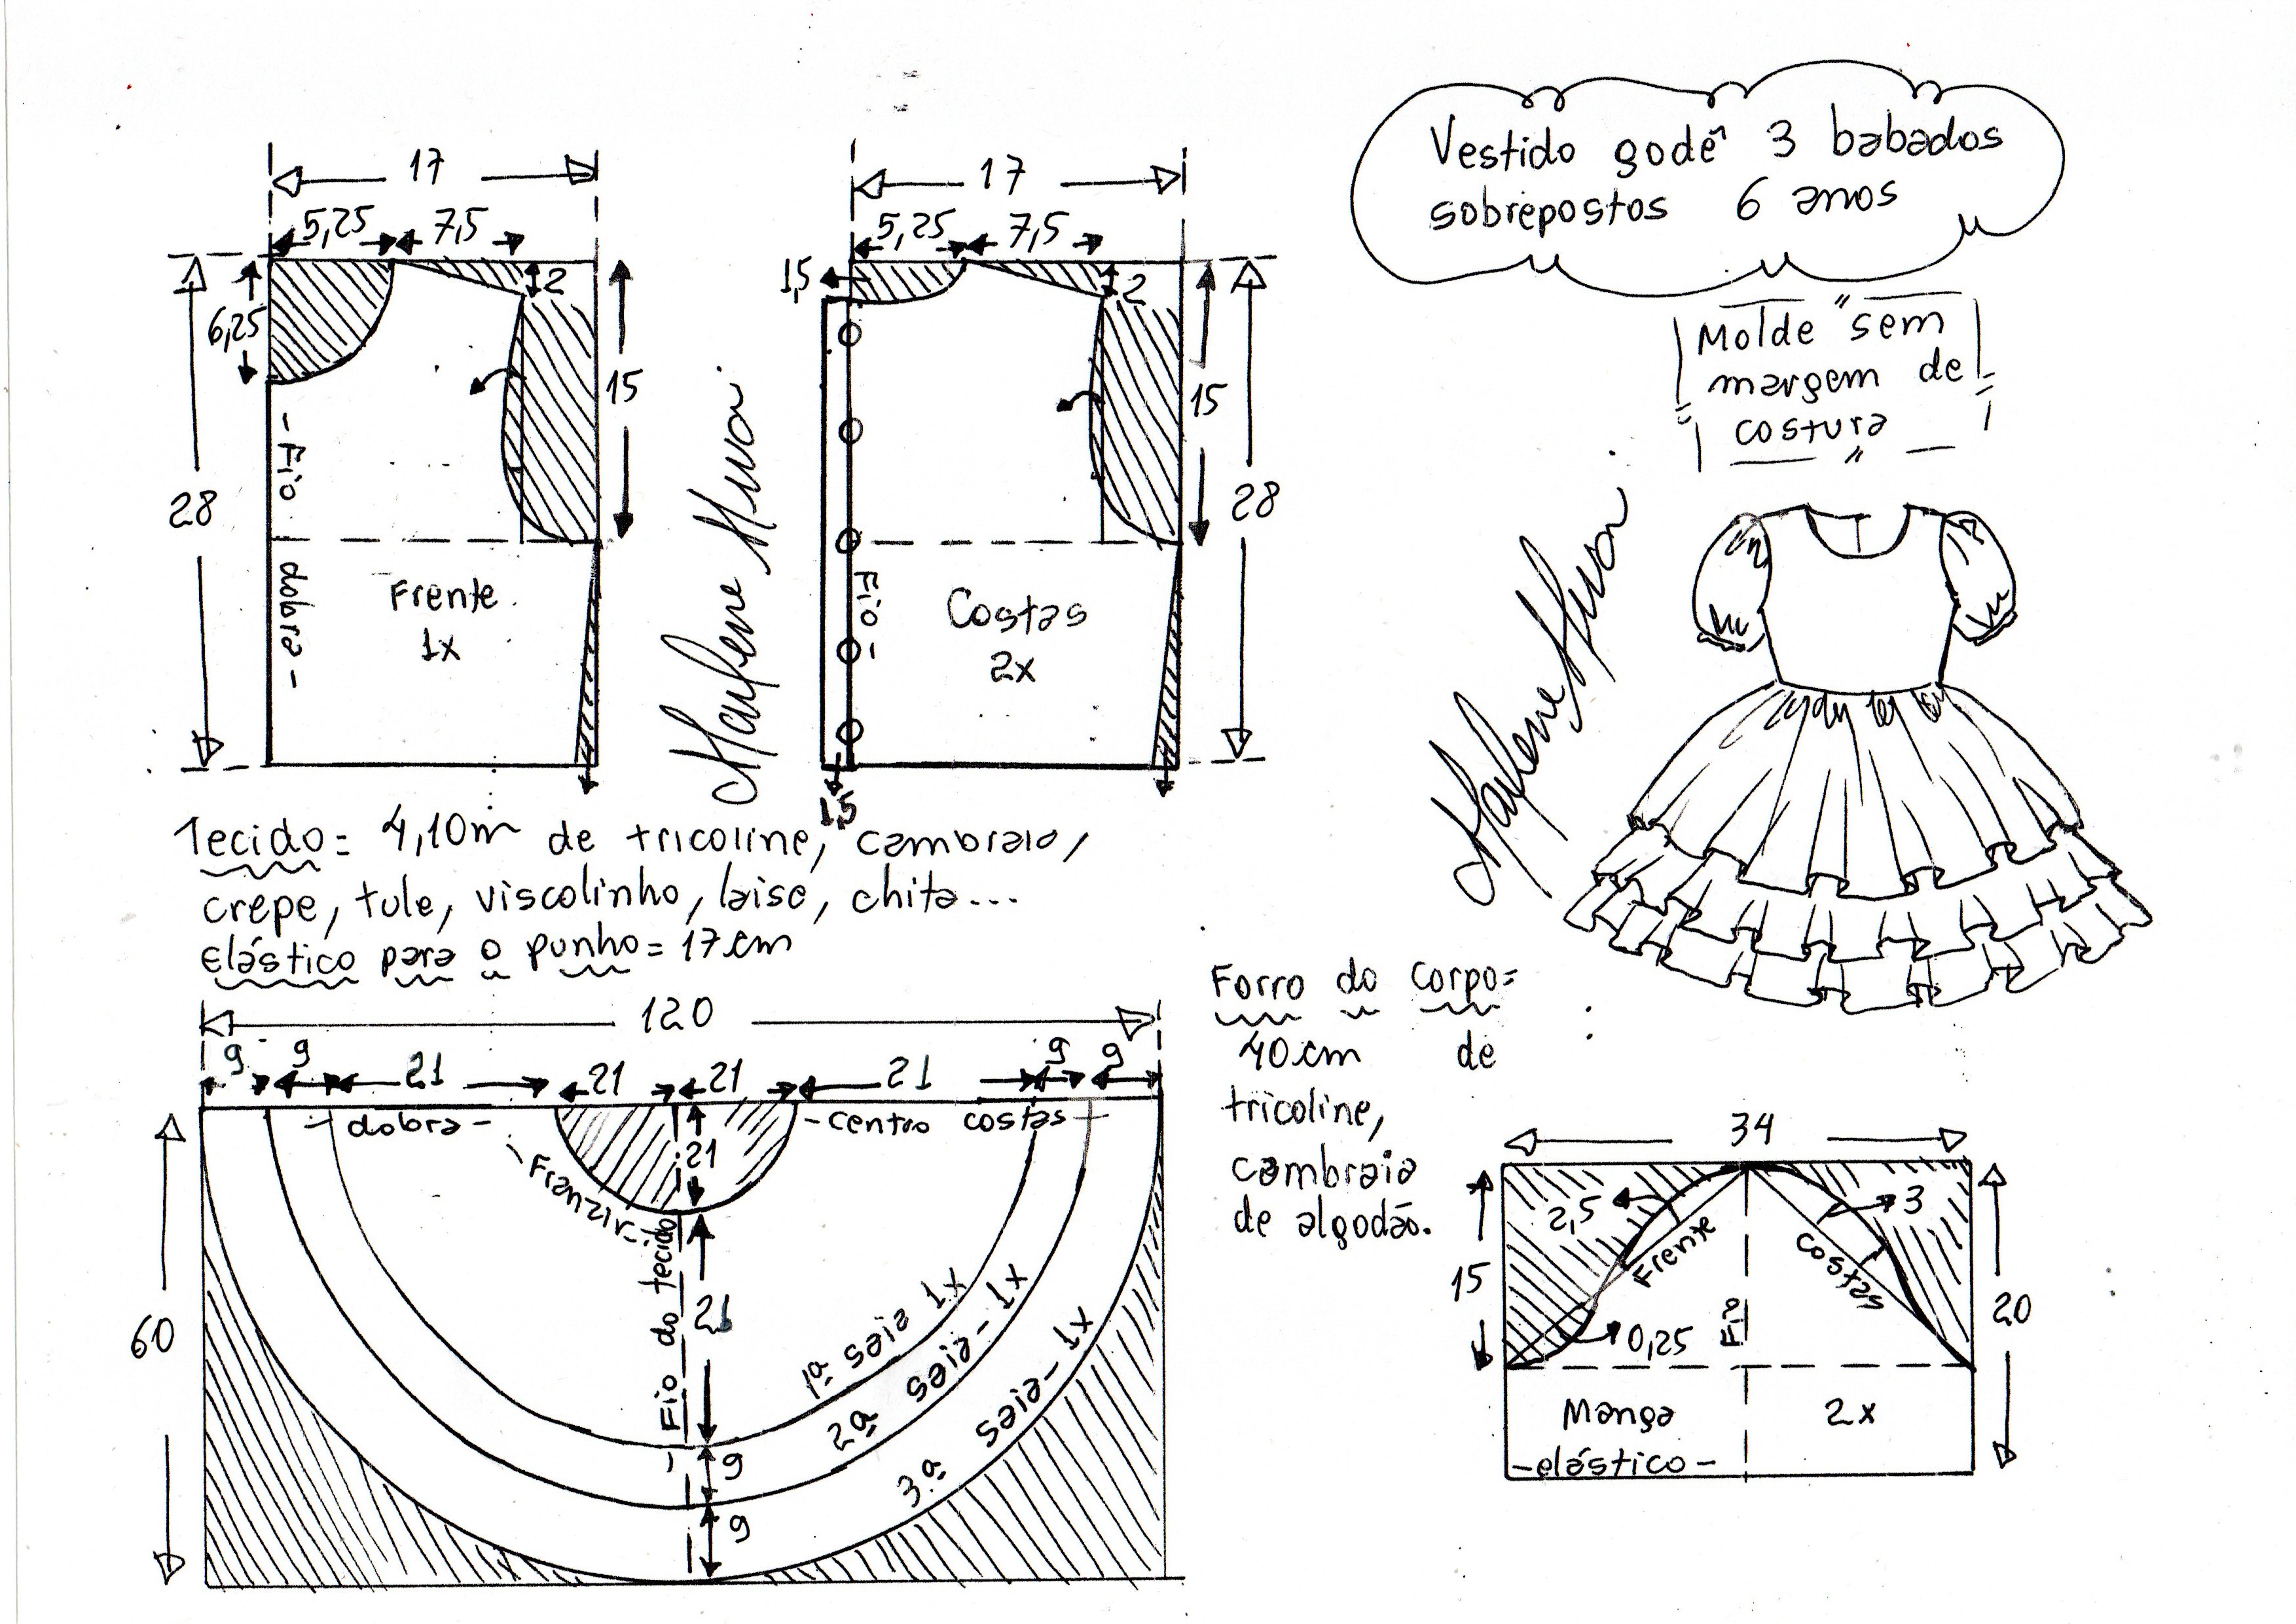 Vestido godê 3 babados
sobrepostos 6 anos
Molde "sem
margem de
costura
"
17
5,25 7,5
2
6,25
15
28
-Fio dobra-
Frente
1x
17
5,25 7,5
1,5
2
15
28
Fio-
Costas
2x
1,5
Marlene Mukai
Marlene Mukai
Tecido= 4,10m de tricoline, cambraia,
crepe, tule, viscolinho, laise, chita...
elástico para o punho= 17cm
120
9 9 21 21 21 21 9 9
-dobra- -centro costas-
-Franzir-
21
Fio do tecido
21
60
1ª saia 1x
2ª saia-1x
3ª saia-1x
9
9
Forro do corpo=
40cm de
tricoline,
cambraia
de algodão.
34
2,5 3
Frente Costas
15
20
0,25
Fio
Manga 2x
-elástico-